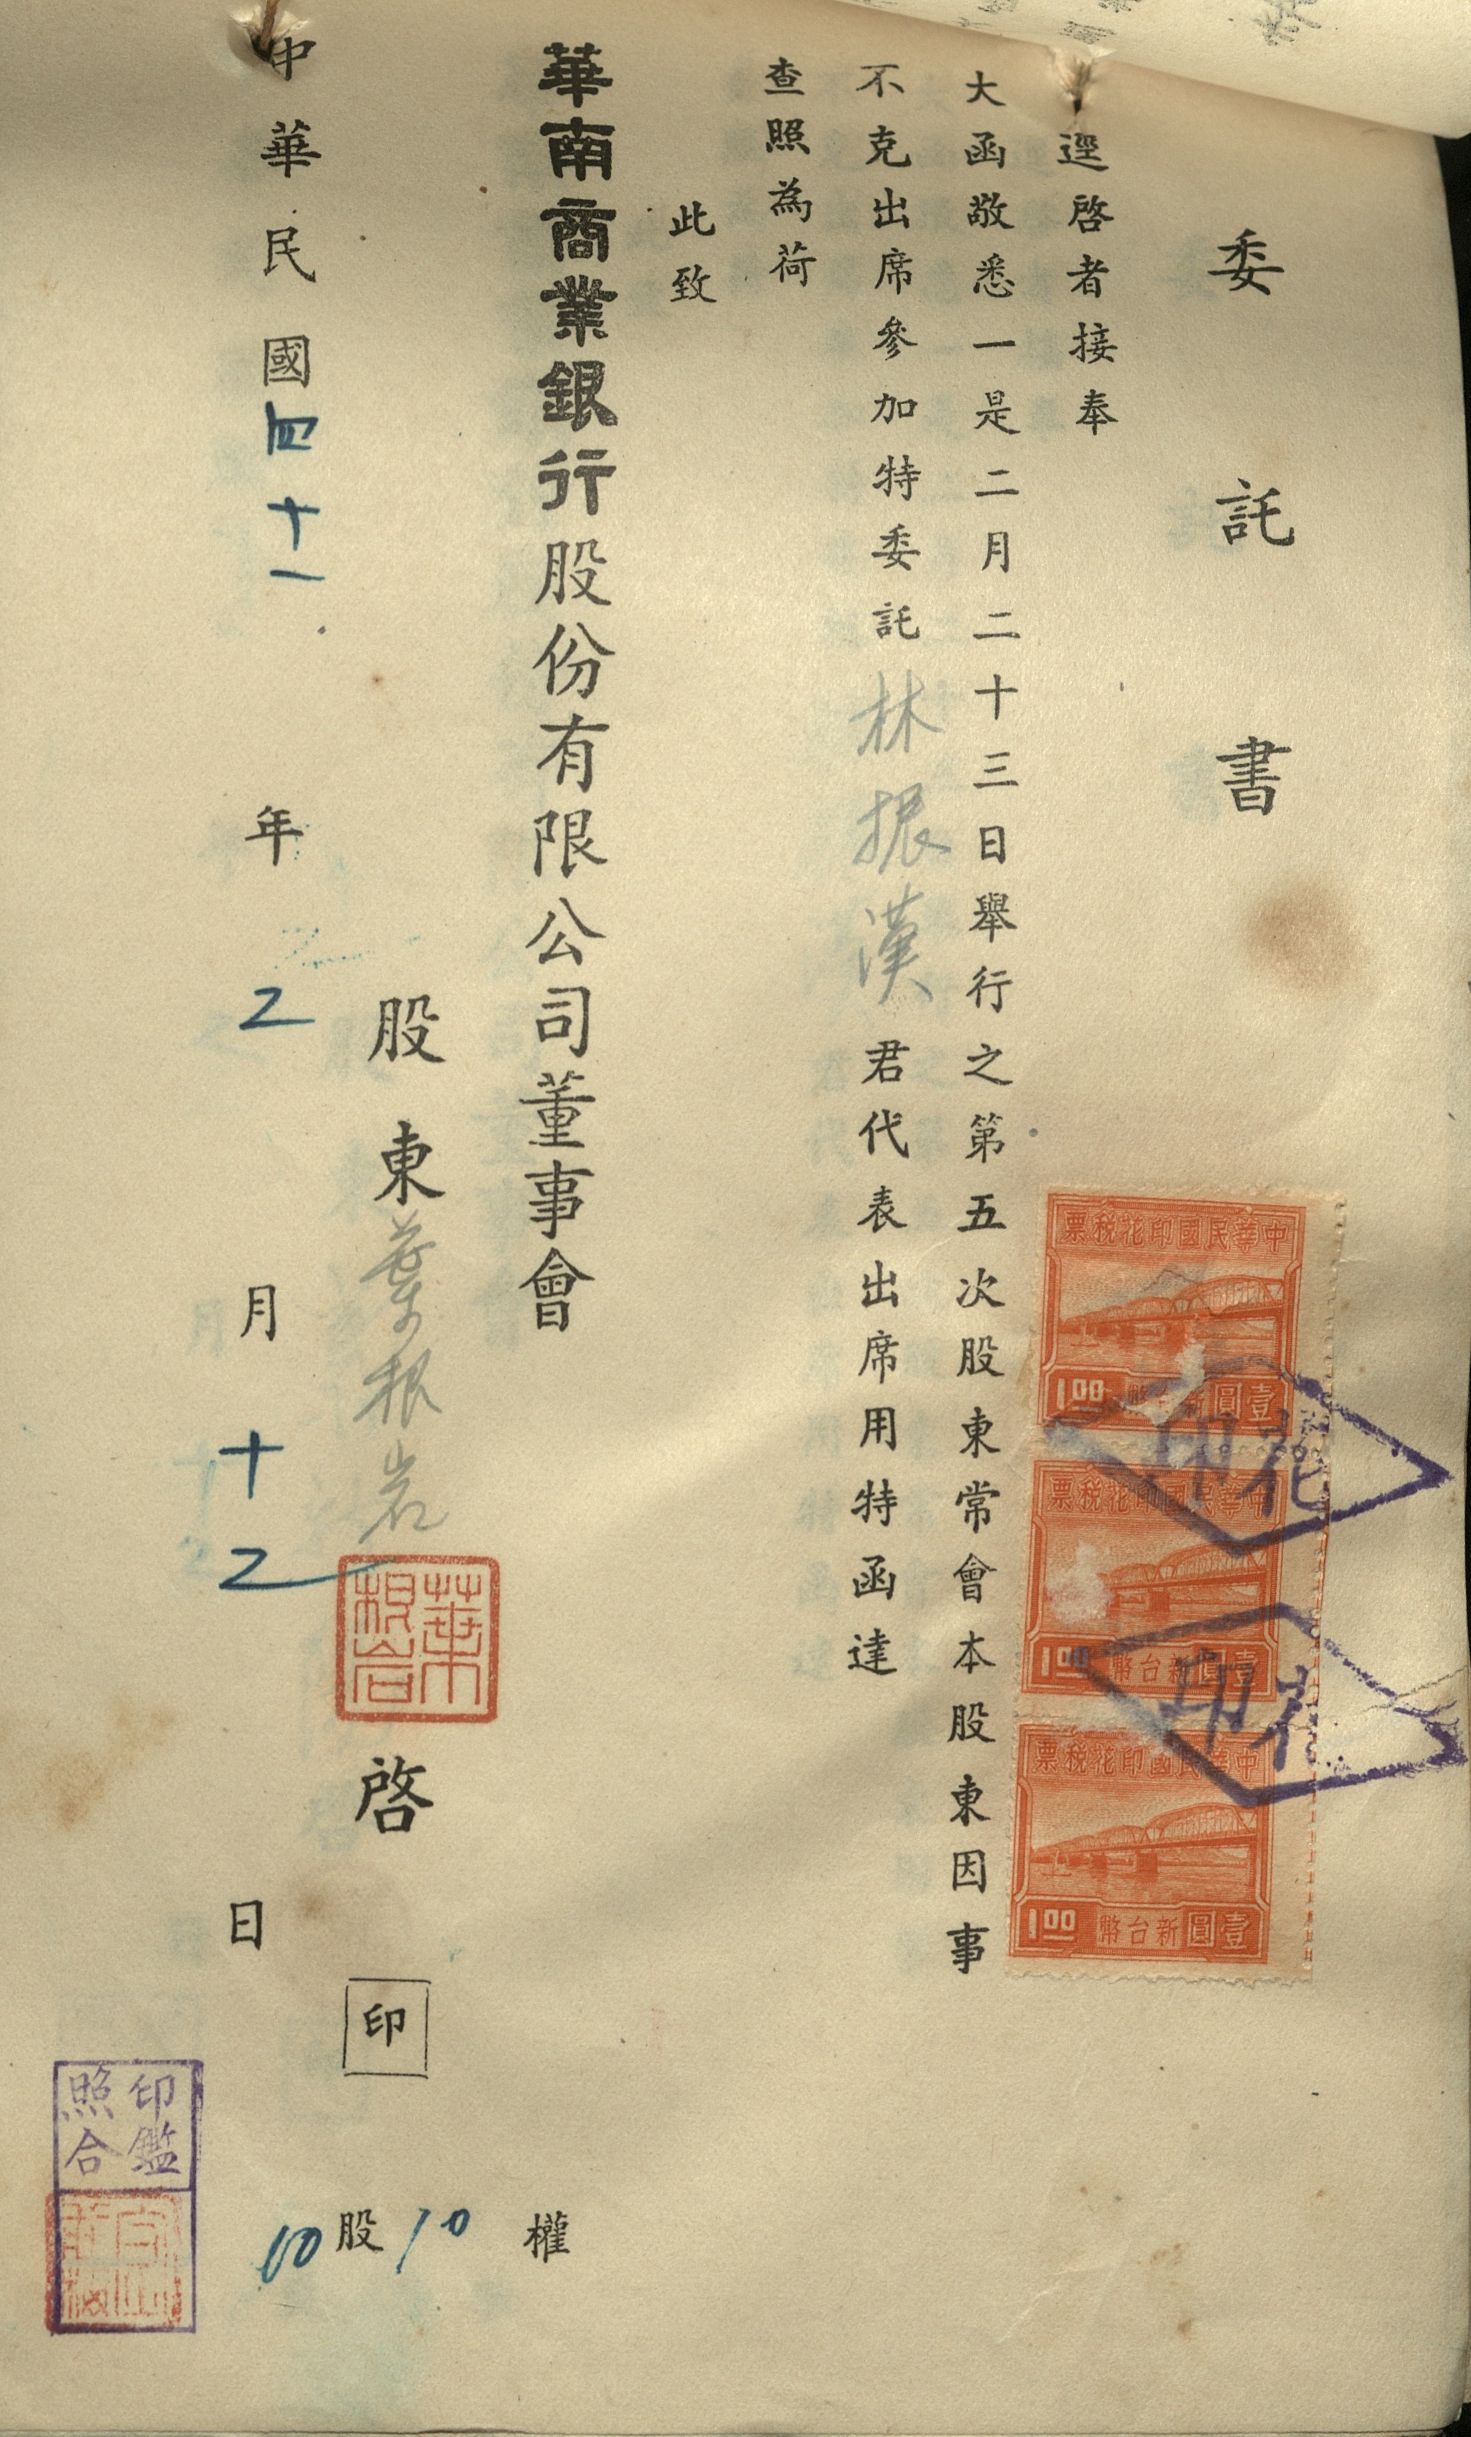 委託書
逕啓者接奉
大函敬悉一是二月二十三日舉行之第五次股東常會本股東因事
不克出席參加特委託林振漢君代表出席用特函達
查照為荷
此致
華南商業銀行股份有限公司董事會
股東葉根岩啓印
葉根岩
權
10股10
中華民國四十一年2月十2日
印鑑照合
中華民國印花稅票
1.00 新台幣壹圓
中華民國印花稅票
1.00 新台幣壹圓
中華民國印花稅票
1.00 新台幣壹圓
印花
印花